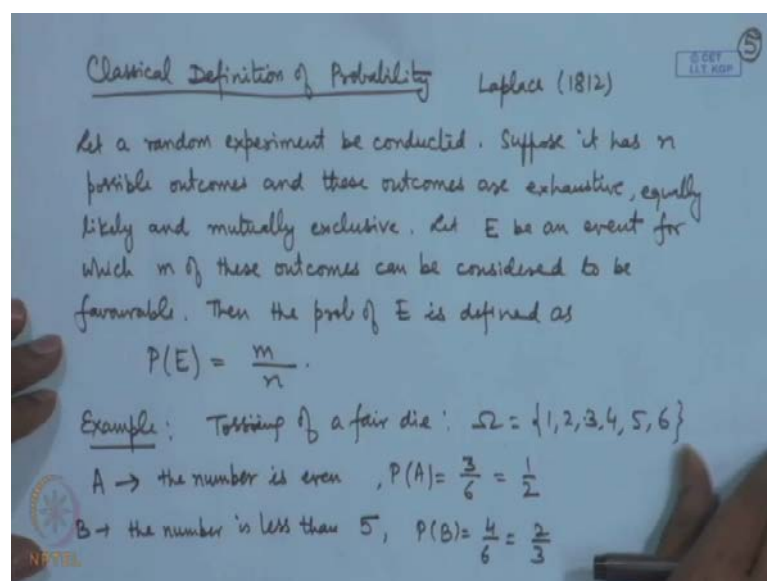 Classical Definition of Probability Laplace (1812)
5
© CET
I.I.T. KGP
Let a random experiment be conducted. Suppose it has n
possible outcomes and these outcomes are exhaustive, equally
likely and mutually exclusive. Let E be an event for
which m of these outcomes can be considered to be
favourable. Then the prob of E is defined as
P(E) = m/n.
Example: Tossing of a fair die: Ω = {1,2,3,4,5,6}
A → the number is even, P(A) = 3/6 = 1/2
B → the number is less than 5, P(B) = 4/6 = 2/3
NPTEL